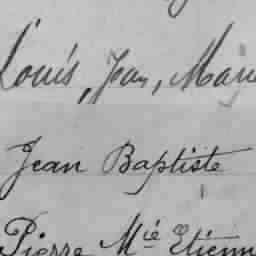 Louis, Jean, Marie
Jean Baptiste
Pierre Mié Etienn